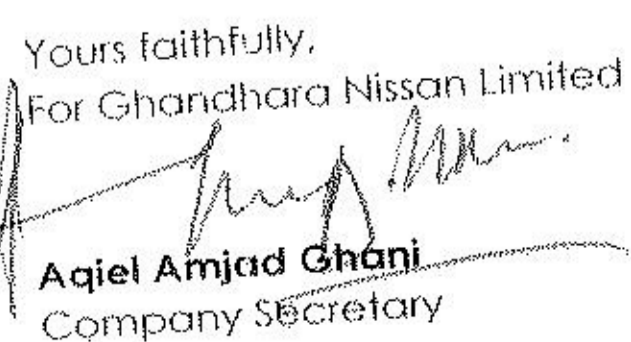 Yours faithfully,
For Ghandhara Nissan Limited
Aqiel Amjad Ghani
Company Secretary